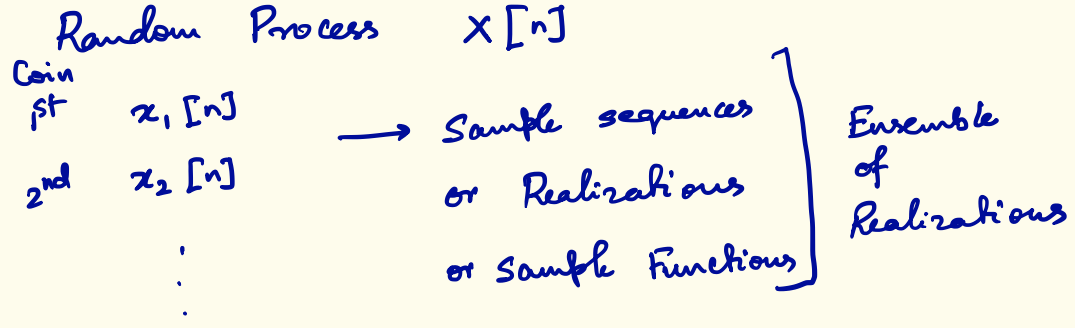 Random Process X[n]
Coin
1st x₁[n] → Sample sequences
2nd x₂[n] or Realizations
or Sample Functions
Ensemble
of
Realizations